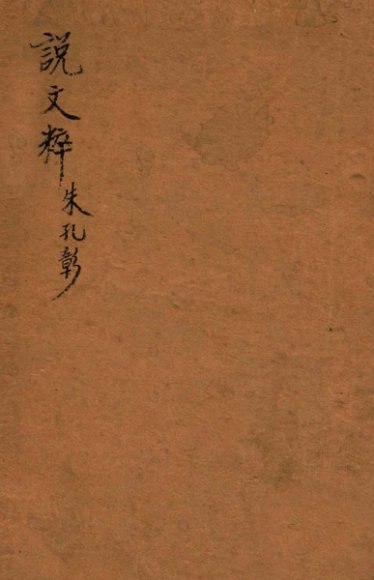 說文粹
朱孔彰